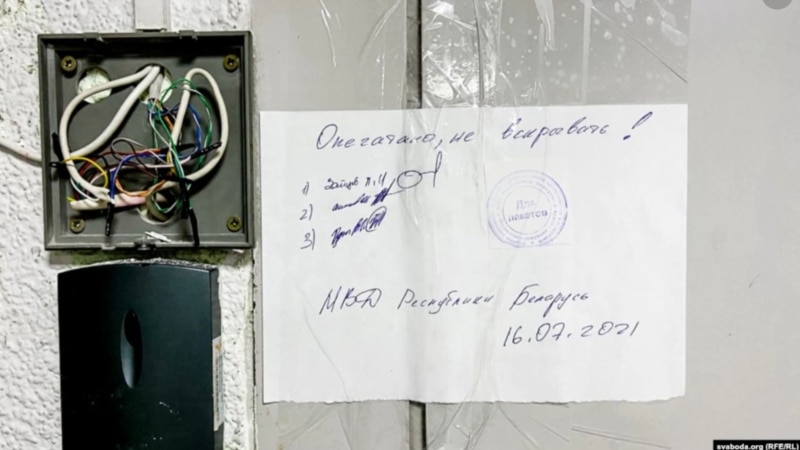 Опечатано, не вскрывать!
1) Зайцев
2)
3)
Для
пакетов
МВД Республики Беларусь
16.07.2021
svaboda.org (RFE/RL)